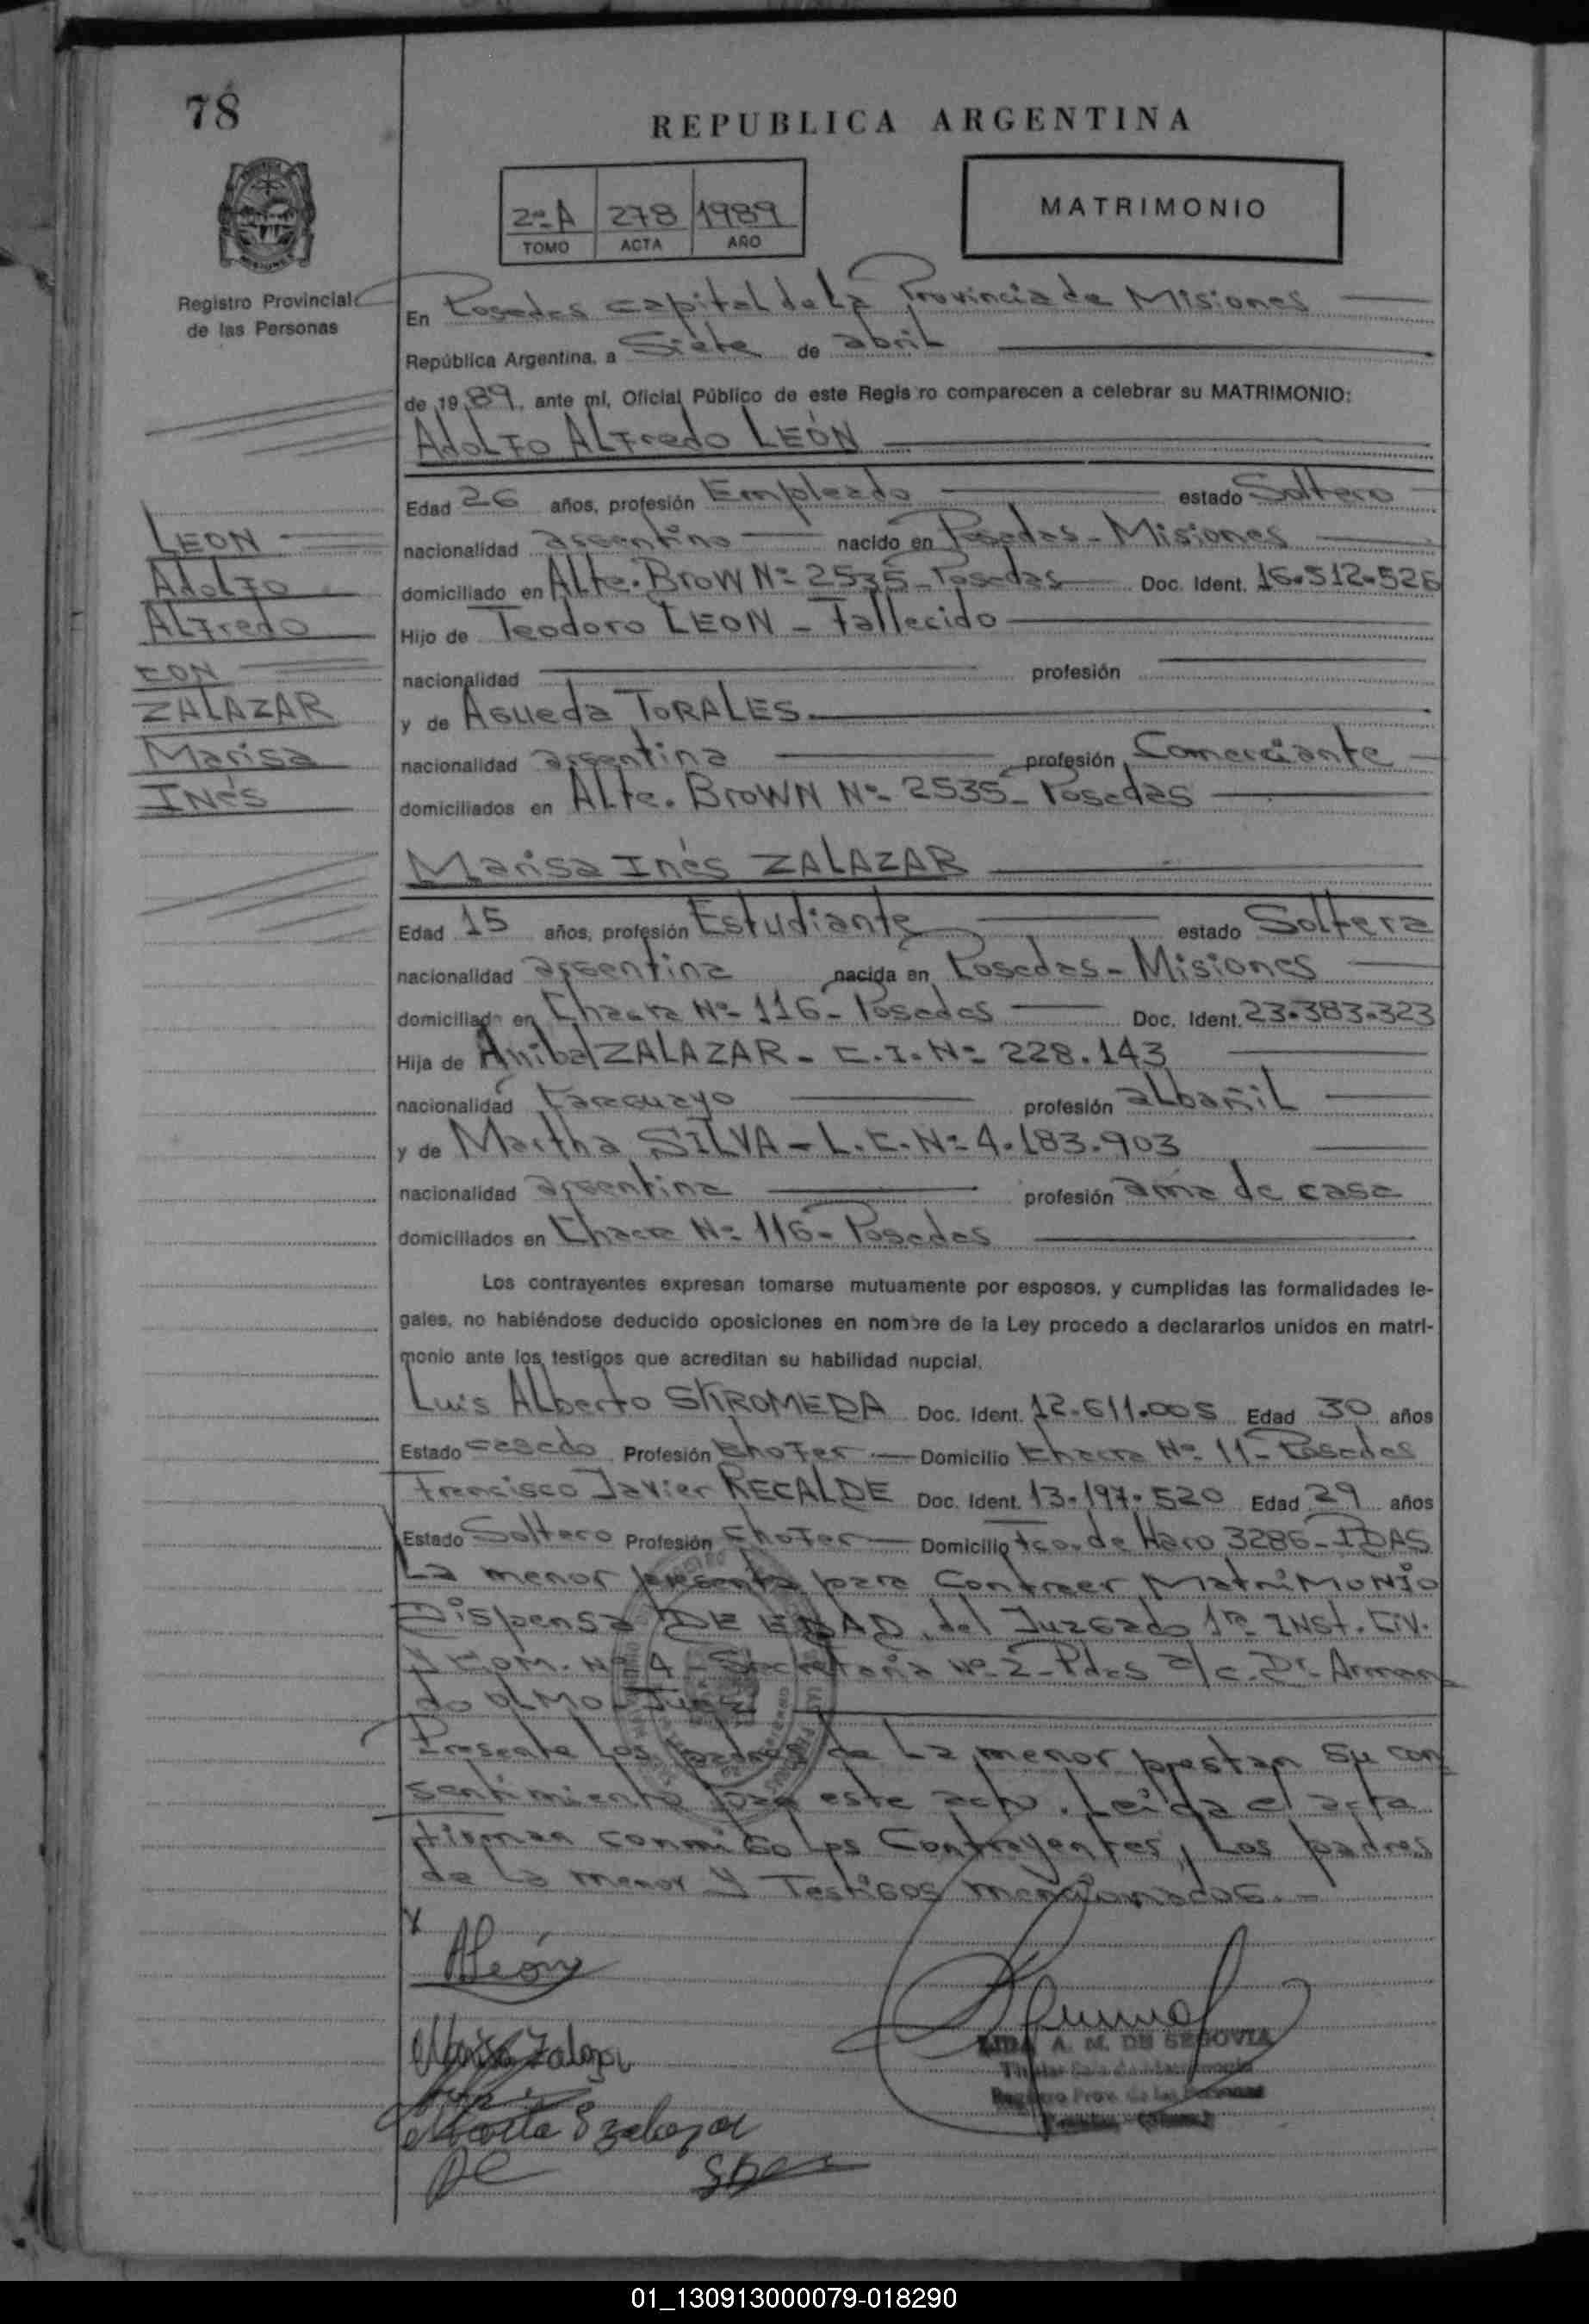 78
REPUBLICA ARGENTINA
2º A 278 1989
TOMO ACTA AÑO
MATRIMONIO
Registro Provincial
de las Personas
En Posadas capital de la Provincia de Misiones
República Argentina, a Siete de abril
de 1989, ante mí, Oficial Público de este Regis ro comparecen a celebrar su MATRIMONIO:
Adolfo Alfredo LEÓN
Edad 26 años, profesión Empleado estado Soltero
nacionalidad argentino nacido en Posadas - Misiones
domiciliado en Alte. Brown Nº 2535 - Posadas Doc. Ident. 16.512.526
Hijo de Teodoro LEON - Fallecido
nacionalidad profesión
y de Agueda TORALES
nacionalidad argentina profesión Comerciante
domiciliados en Alte. BROWN Nº 2535 - Posadas
LEON
Adolfo
Alfredo
CON
ZALAZAR
Marisa
Inés
Marisa Inés ZALAZAR
Edad 15 años, profesión Estudiante estado Soltera
nacionalidad argentina nacida en Posadas - Misiones
domiciliada en Chacra Nº 116 - Posadas Doc. Ident. 23.383.323
Hija de Anibal ZALAZAR - C.I. Nº 228.143
nacionalidad Paraguayo profesión albañil
y de Martha SILVA - L.C. Nº 4.183.903
nacionalidad argentina profesión ama de casa
domiciliados en Chacra Nº 116 - Posadas
Los contrayentes expresan tomarse mutuamente por esposos, y cumplidas las formalidades le-
gales, no habiéndose deducido oposiciones en nombre de la Ley procedo a declararlos unidos en matri-
monio ante los testigos que acreditan su habilidad nupcial.
Luis Alberto SKROMEDA Doc. Ident. 12.611.005 Edad 30 años
Estado casado Profesión Chofer Domicilio Chacra Nº 11 - Posadas
Francisco Javier RECALDE Doc. Ident. 13.197.520 Edad 29 años
Estado Soltero Profesión Chofer Domicilio Fco. de Haro 3286 - PDAS
La menor presenta para Contraer Matrimonio
Dispensa DE EDAD del Juzgado 1ra INst. Civ.
y Com. Nº 4 - Secretaria Nº 2 - Pdas a/c. Dr. Arman
do OLMO - Juez
Presente los padres de la menor prestan su con
sentimiento para este acto. Leida el acta
firman conmigo los Contrayentes, Los padres
de la menor y Testigos mencionados. -
ALeón
Marisa Zalazar
Marta S Zalazar
LIDA A. M. DE SEGOVIA
Titular Sala de Matrimonio
Registro Prov. de las Personas
01_130913000079-018290